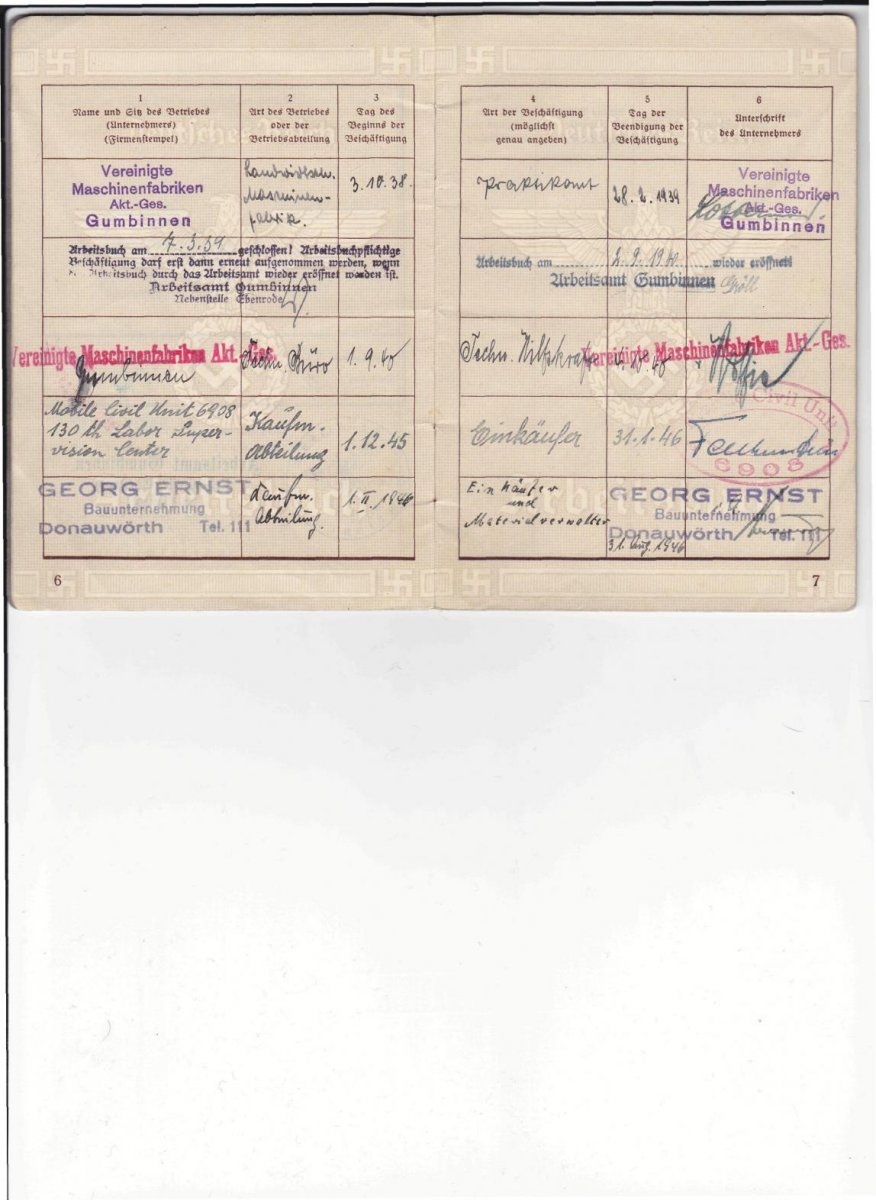 1
Name und Sitz des Betriebes
(Unternehmers)
(Firmenstempel)
2
Art des Betriebes
oder der
Betriebsabteilung
3
Tag des
Beginns der
Beschäftigung
4
Art der Beschäftigung
(möglichst
genau angeben)
5
Tag der
Beendigung der
Beschäftigung
6
Unterschrift
des Unternehmers
Vereinigte
Maschinenfabriken
Akt.-Ges.
Gumbinnen
Landwirtsch.
Maschinen-
fabrik.
3.10.38.
Praktikant
28.2.1939
Vereinigte
Maschinenfabriken
Akt.-Ges.
Gumbinnen
Arbeitsbuch am 7.3.39 geschlossen! Arbeitsbuchpflichtige
Beschäftigung darf erst dann erneut aufgenommen werden, wenn
Arbeitsbuch durch das Arbeitsamt wieder eröffnet worden ist.
Arbeitsamt Gumbinnen
Nebenstelle Ebenrode
Arbeitsbuch am 2.9.1940 wieder eröffnet
Arbeitsamt Gumbinnen
Vereinigte Maschinenfabriken Akt.-Ges.
Gumbinnen
Techn. Büro
1.9.40
Techn. Hilfskraft
Vereinigte Maschinenfabriken Akt.-Ges.
Mobile Civil Unit 6908
130 th Labor Super-
vision Center
Kaufm.
Abteilung
1.12.45
Einkäufer
31.1.46
Civil Unit
6908
GEORG ERNST
Bauunternehmung
Donauwörth Tel. 111
Kaufm.
Abteilung.
1.II.1946
Einkäufer
und
Materialverwalter
31. Aug. 1946
GEORG ERNST
Bauunternehmung
Donauwörth Tel. 111
6
7